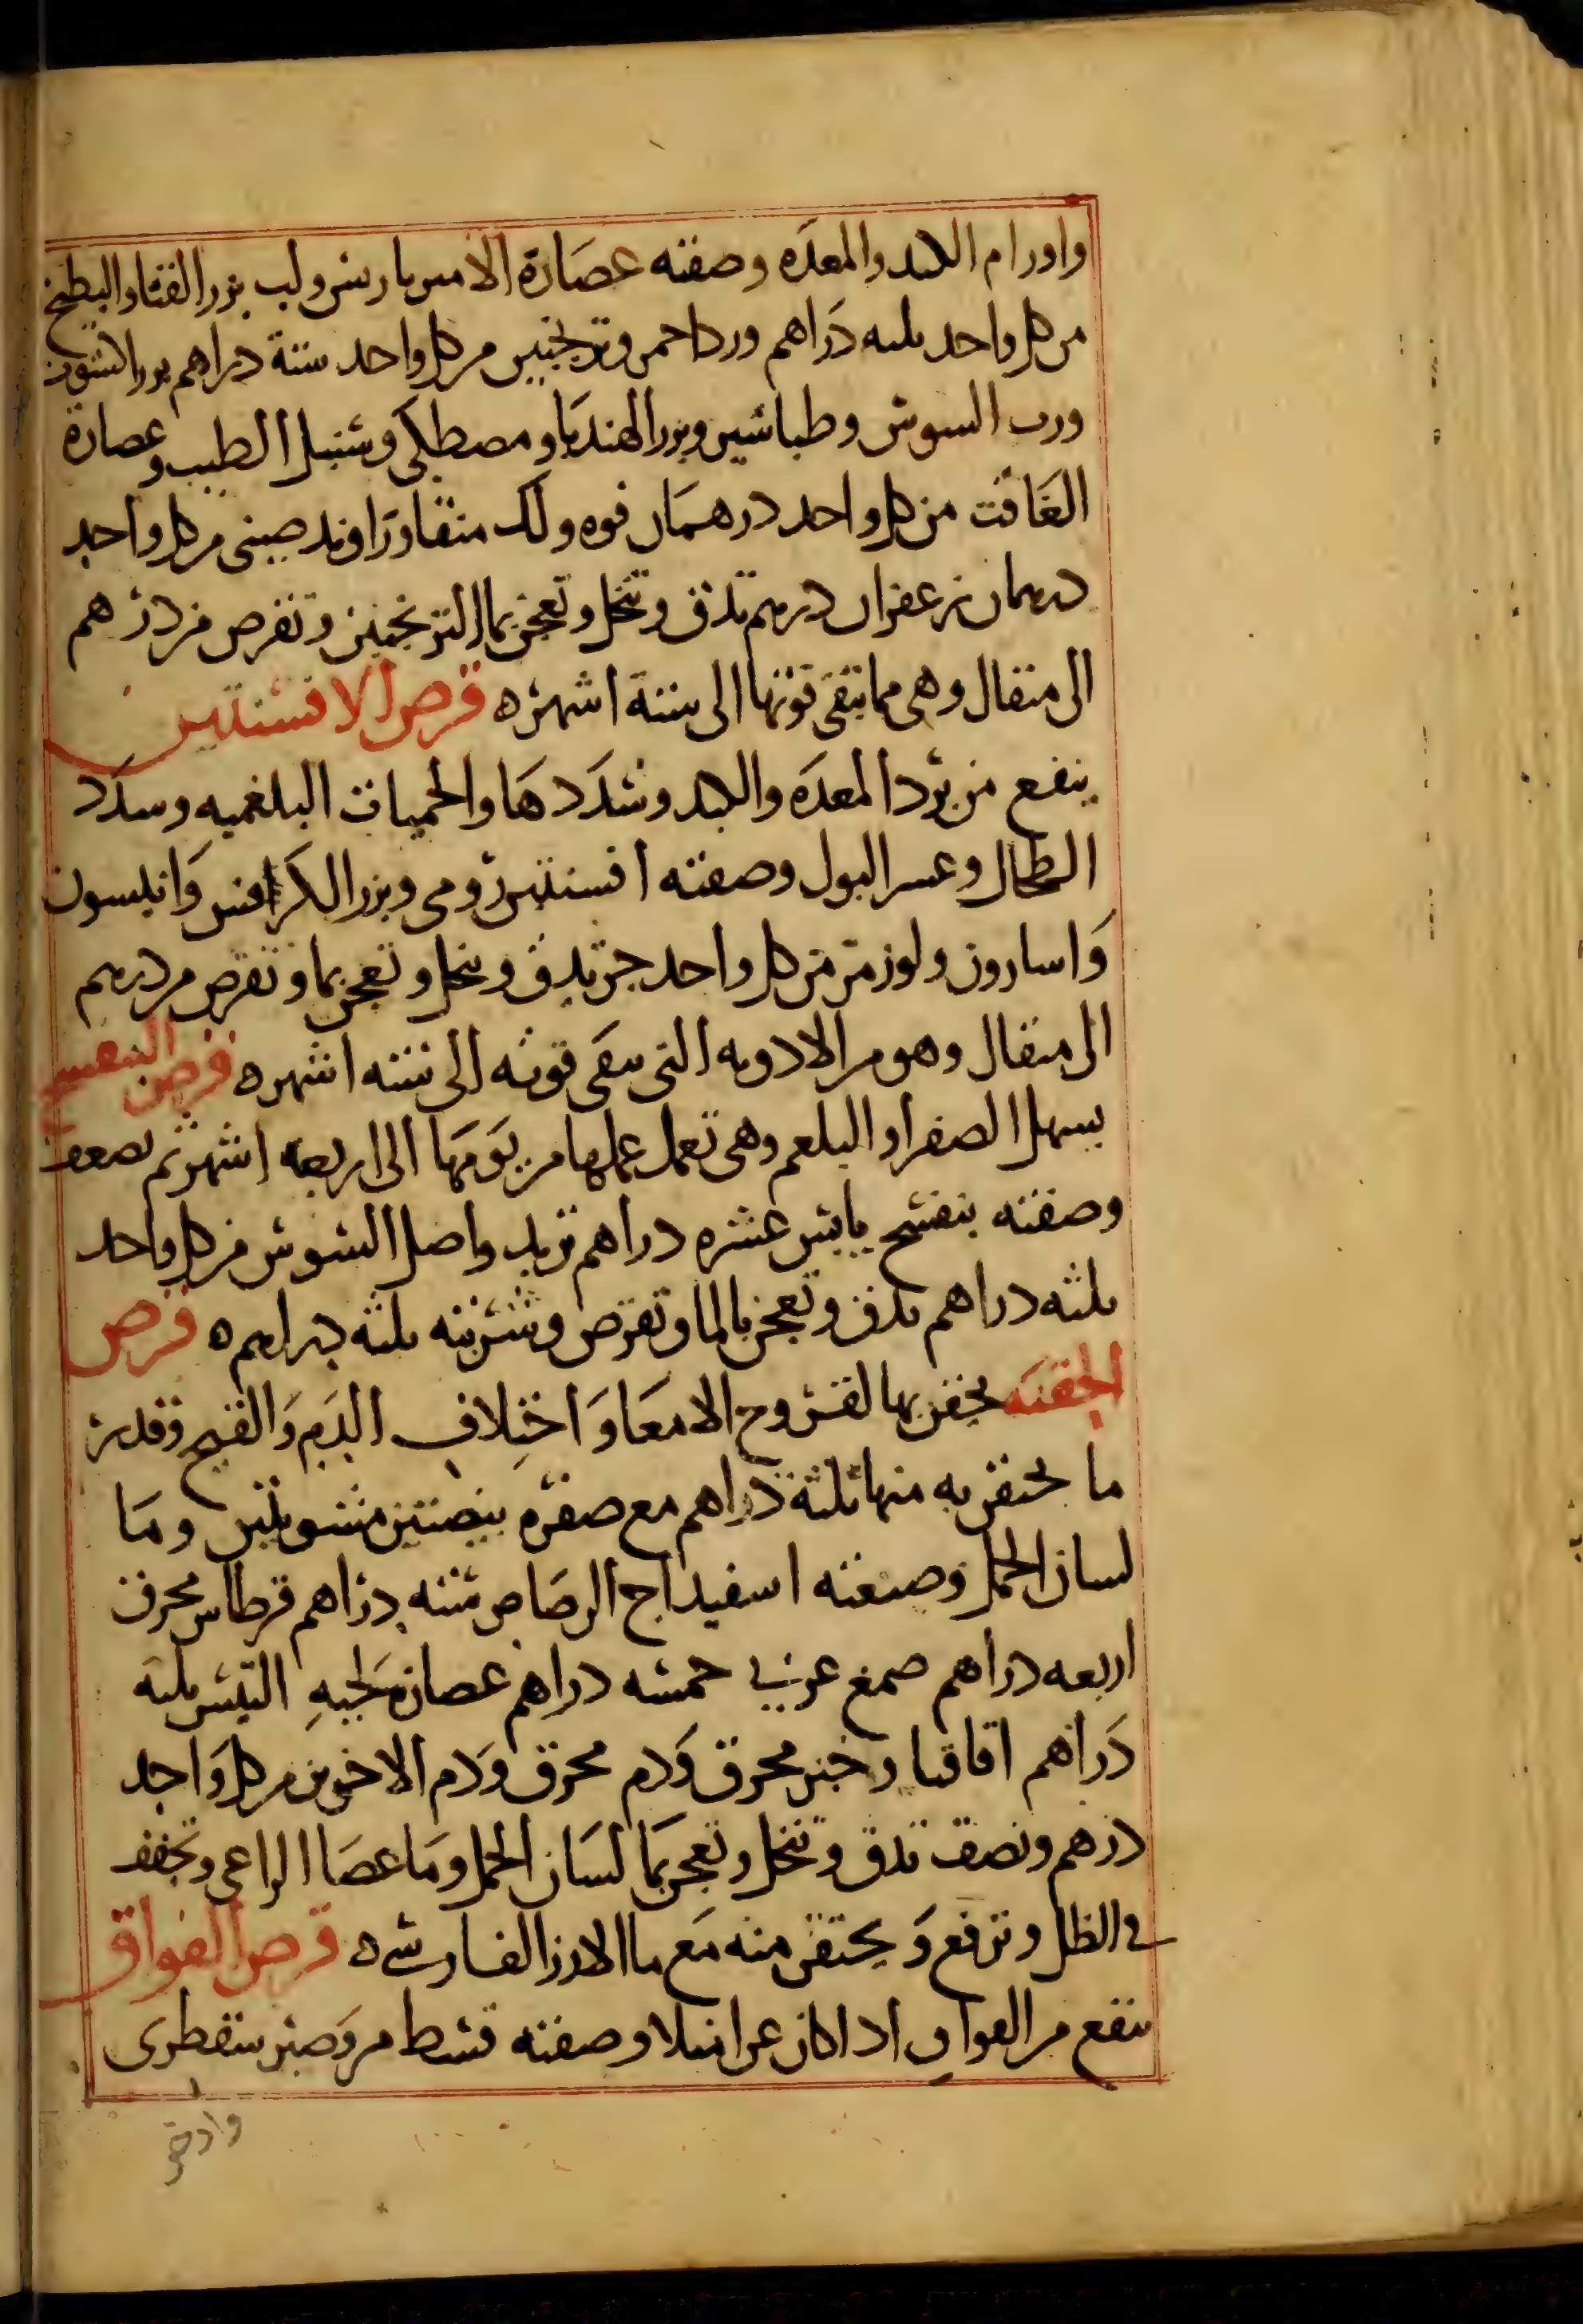 واورام الكبد والمعدَه وصفته عصَارة الامبرباريس ولب بزر القثا والبطيخ
من كل واحد ثلثه دَراهم ورد احمر وترنجبين من كل واحد ستة دراهم بزر الكشوث
ورب السوس وطباشير وبزر الهندبا ومصطكى وسنبل الطيب وعصارة
الغَافت من كل واحد درهمَان فوه ولك منقا ورَاوند صينى من كل واحد
درهمان زعفران درهم تدق وتنخل وتعجن بما الترنجبين وتقرص من درهم
الى مثقال وهى مما تبقى قوتها الى ستة اشهر ه قرص الافسنتين
ينفع من برد المعدَه والكبد وسُدَدهَا والحميات البلغميه وسدَد
الطحال وعسر البول وصفته افسنتين رومى وبزر الكرافس وَانيسون
وَاسارون ولوز مرّ من كل واحد جز يدق وينخل وتعجن بما وتقرص من درهم
الى مثقال وهو من الادويه التى تبقى قوته الى سته اشهر ه قرص البنفسج
يسهل الصفرا والبلغم وهى تعمل عملها من يَومَها الى اربعه اشهر ثم تضعف
وصفته بنفسج يابس عشره دراهم تربد واصل السوس من كل واحد
ثلثه دراهم تدق وتعجن بالما وتقرّص وشربته ثلثه دراهم ه قرص
الحقنَه يحقن بها لقروح الامعَا وَاختِلاف الدَم وَالقيح وقدر
ما يحتقن به منها ثلثة دراهم مع صفره بيضتين مشويتين ومَا
لسان الحمل وصنعته اسفيداج الرصَاص سته دراهم قرطاس محرق
اربعه دراهم صمغ عربي خمسه دراهم عصارة لحيهِ التيس ثلثه
دَراهم اقاقيا وخبز محرق وَدم محرق وَدم الاخوين من كل وَاحد
درهم ونصف تدق وتنخل وتعجن بمَا لسَان الحمل ومَا عصَا الراعى وتجفف
في الظل وترفع وَيحتقن منه مَع ما الارز الفارسي ه قرص الفواق
ينفع من الفواق اذا كان عن امتلا وصفته قسط مر وَصبر سقطرى
واذخر